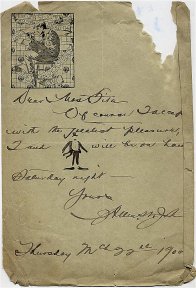 Dear Mrs
Of course I accept
with the greatest pleasure,
I and will be on hand
Saturday night —
Yours
Thursday Mch 22nd 1900